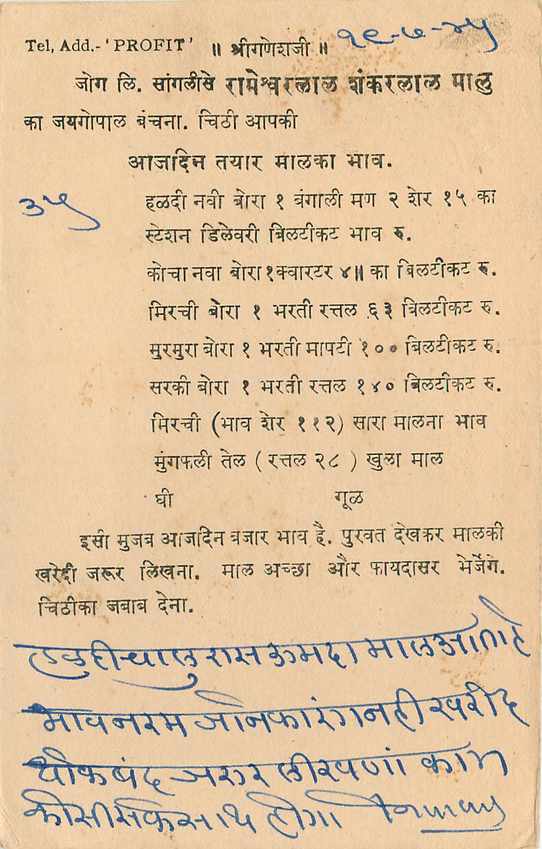 Tel, Add.- 'PROFIT' ॥ श्रीगणेशजी ॥
जोग लि. सांगलीसे रामेश्वरलाल शंकरलाल मालु
का जयगोपाल बंचना. चिठी आपकी
आजदिन तयार मालका भाव.
३५
हळदी नवी बोरा १ बंगाली मण २ शेर १५ का
स्टेशन डिलेवरी बिलटीकट भाव रु.
कोचा नवा बोरा १ क्वारटर ४॥ का बिलटीकट रु.
मिरची बोरा १ भरती रत्तल ६३ बिलटीकट रु.
मुरमुरा बोरा १ भरती मापटी १०० बिलटीकट रु.
सरकी बोरा १ भरती रत्तल १४० बिलटीकट रु.
मिरची (भाव शेर ११२) सारा मालना भाव
मुंगफली तेल ( रत्तल २८ ) खुला माल
घी गूळ
इसी मुजब आजदिन बजार भाव है. पुरवत देखकर मालकी
खरेदी जरूर लिखना. माल अच्छा और फायदासर भेजेंगे.
चिठीका जबाब देना.
मालआताहे
भावनरम खरीद
जरुर लीखणां काम
होगा